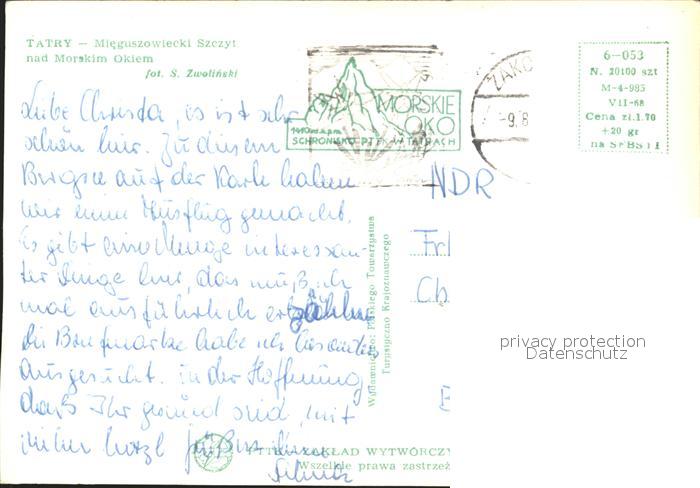 TATRY — Mięguszowiecki Szczyt
nad Morskim Okiem
fot. S. Zwoliński
Liebe Christa, es ist sehr
schön hier. Zu diesem
Bergsee auf der Karte haben
wir einen Ausflug gemacht.
Es gibt eine Menge interessan-
ter Dinge hier, das muß ich
mal ausführlich erzählen
die Briefmarke habe ich besonders
ausgesucht. in der Hoffnung,
daß Ihr gesund seid, mit
vielen herzl Grüßen
MORSKIE
OKO
SCHRONISKO PTTK W TATRACH
ZAKO
-9.8
6-053
N. 20100 szt
M-4-985
VII-68
Cena zł.1.70
+20 gr
na SFBSTI
NDR
Frl
Ch
Wydawnictwo: Polskiego Towarzystwa
Turystyczno Krajoznawczego
privacy protection
Datenschutz
ZAKŁAD WYTWÓRCZY
Wszelkie prawa zastrzeż